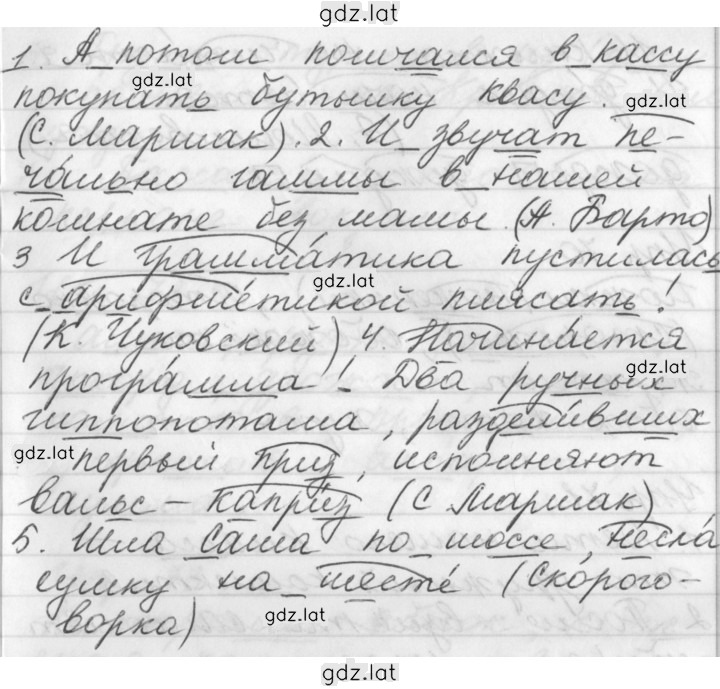 gdz.lat
1. А потом помчался в кассу
gdz.lat
покупать бутылку квасу.
gdz.lat
(С. Маршак). 2. И звучат пе-
чально гаммы в нашей
комнате без мамы. (А. Барто)
3 И грамматика пустилась
gdz.lat
с арифметикой плясать!
(К. Чуковский) 4. Начинается
gdz.lat
программа! Два ручных
гиппопотама, разделивших
gdz.lat
первый приз, исполняют
вальс – каприз (С Маршак)
5. Шла Саша по шоссе, несла
сумку на шесте (Скорого-
gdz.lat
ворка)
gdz.lat